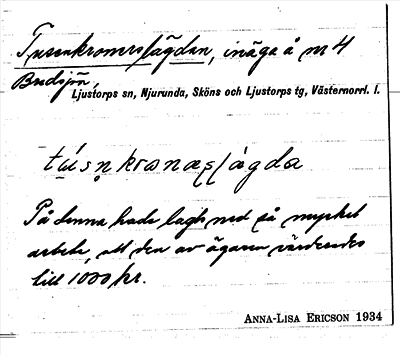 Tusenkronorslägdan, inäga å nr 4
Budsjön,
Ljustorps sn, Njurunda, Sköns och Ljustorps tg, Västernorrl. l.
På denna hade lagts ned så mycket
arbete, att den av ägaren värderades
till 1000 kr.
ANNA-LISA ERICSON 1934